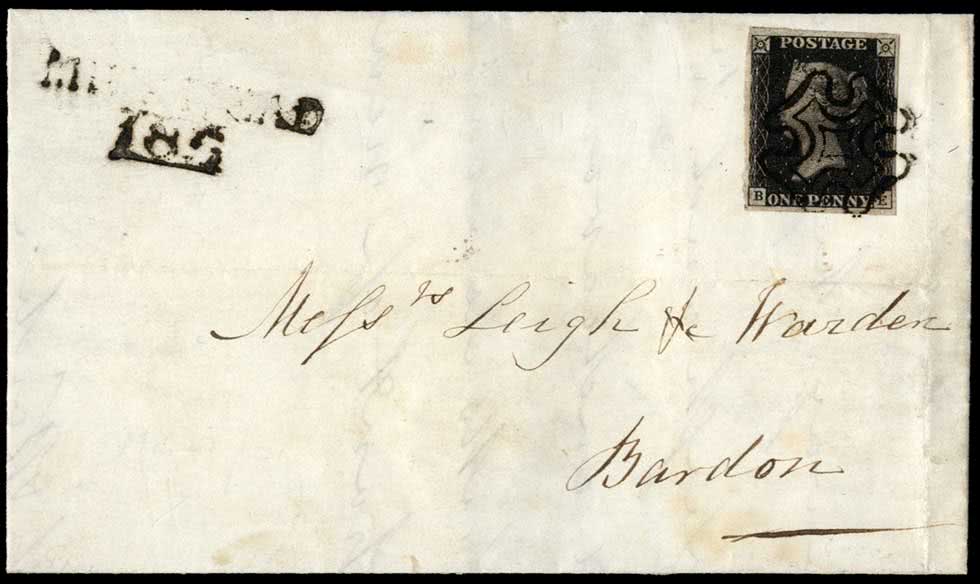 POSTAGE
B ONE PENNY E
183
Messrs Leigh & Warden
Bardon